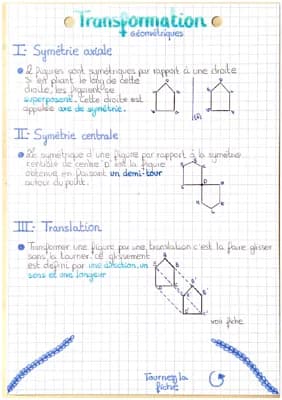 Transformation
Géométriques
I- Symétrie axiale
2 figures sont symétriques par rapport à une droite
si en pliant le long de cette
droite, les figures se
superposent. Cette droite est
appelée axe de symétrie.
(d)
II- Symétrie centrale
Le symétrique d'une figure par rapport à la symétrie
centrale de centre "O" est la figure
obtenue en faisant un demi-tour
autour du point.
III- Translation
Transformer une figure par une translation c'est la faire glisser
sans la tourner. Ce glissement
est défini par une direction, un
sens et une longueur
voir fiche
Tournez la
fiche